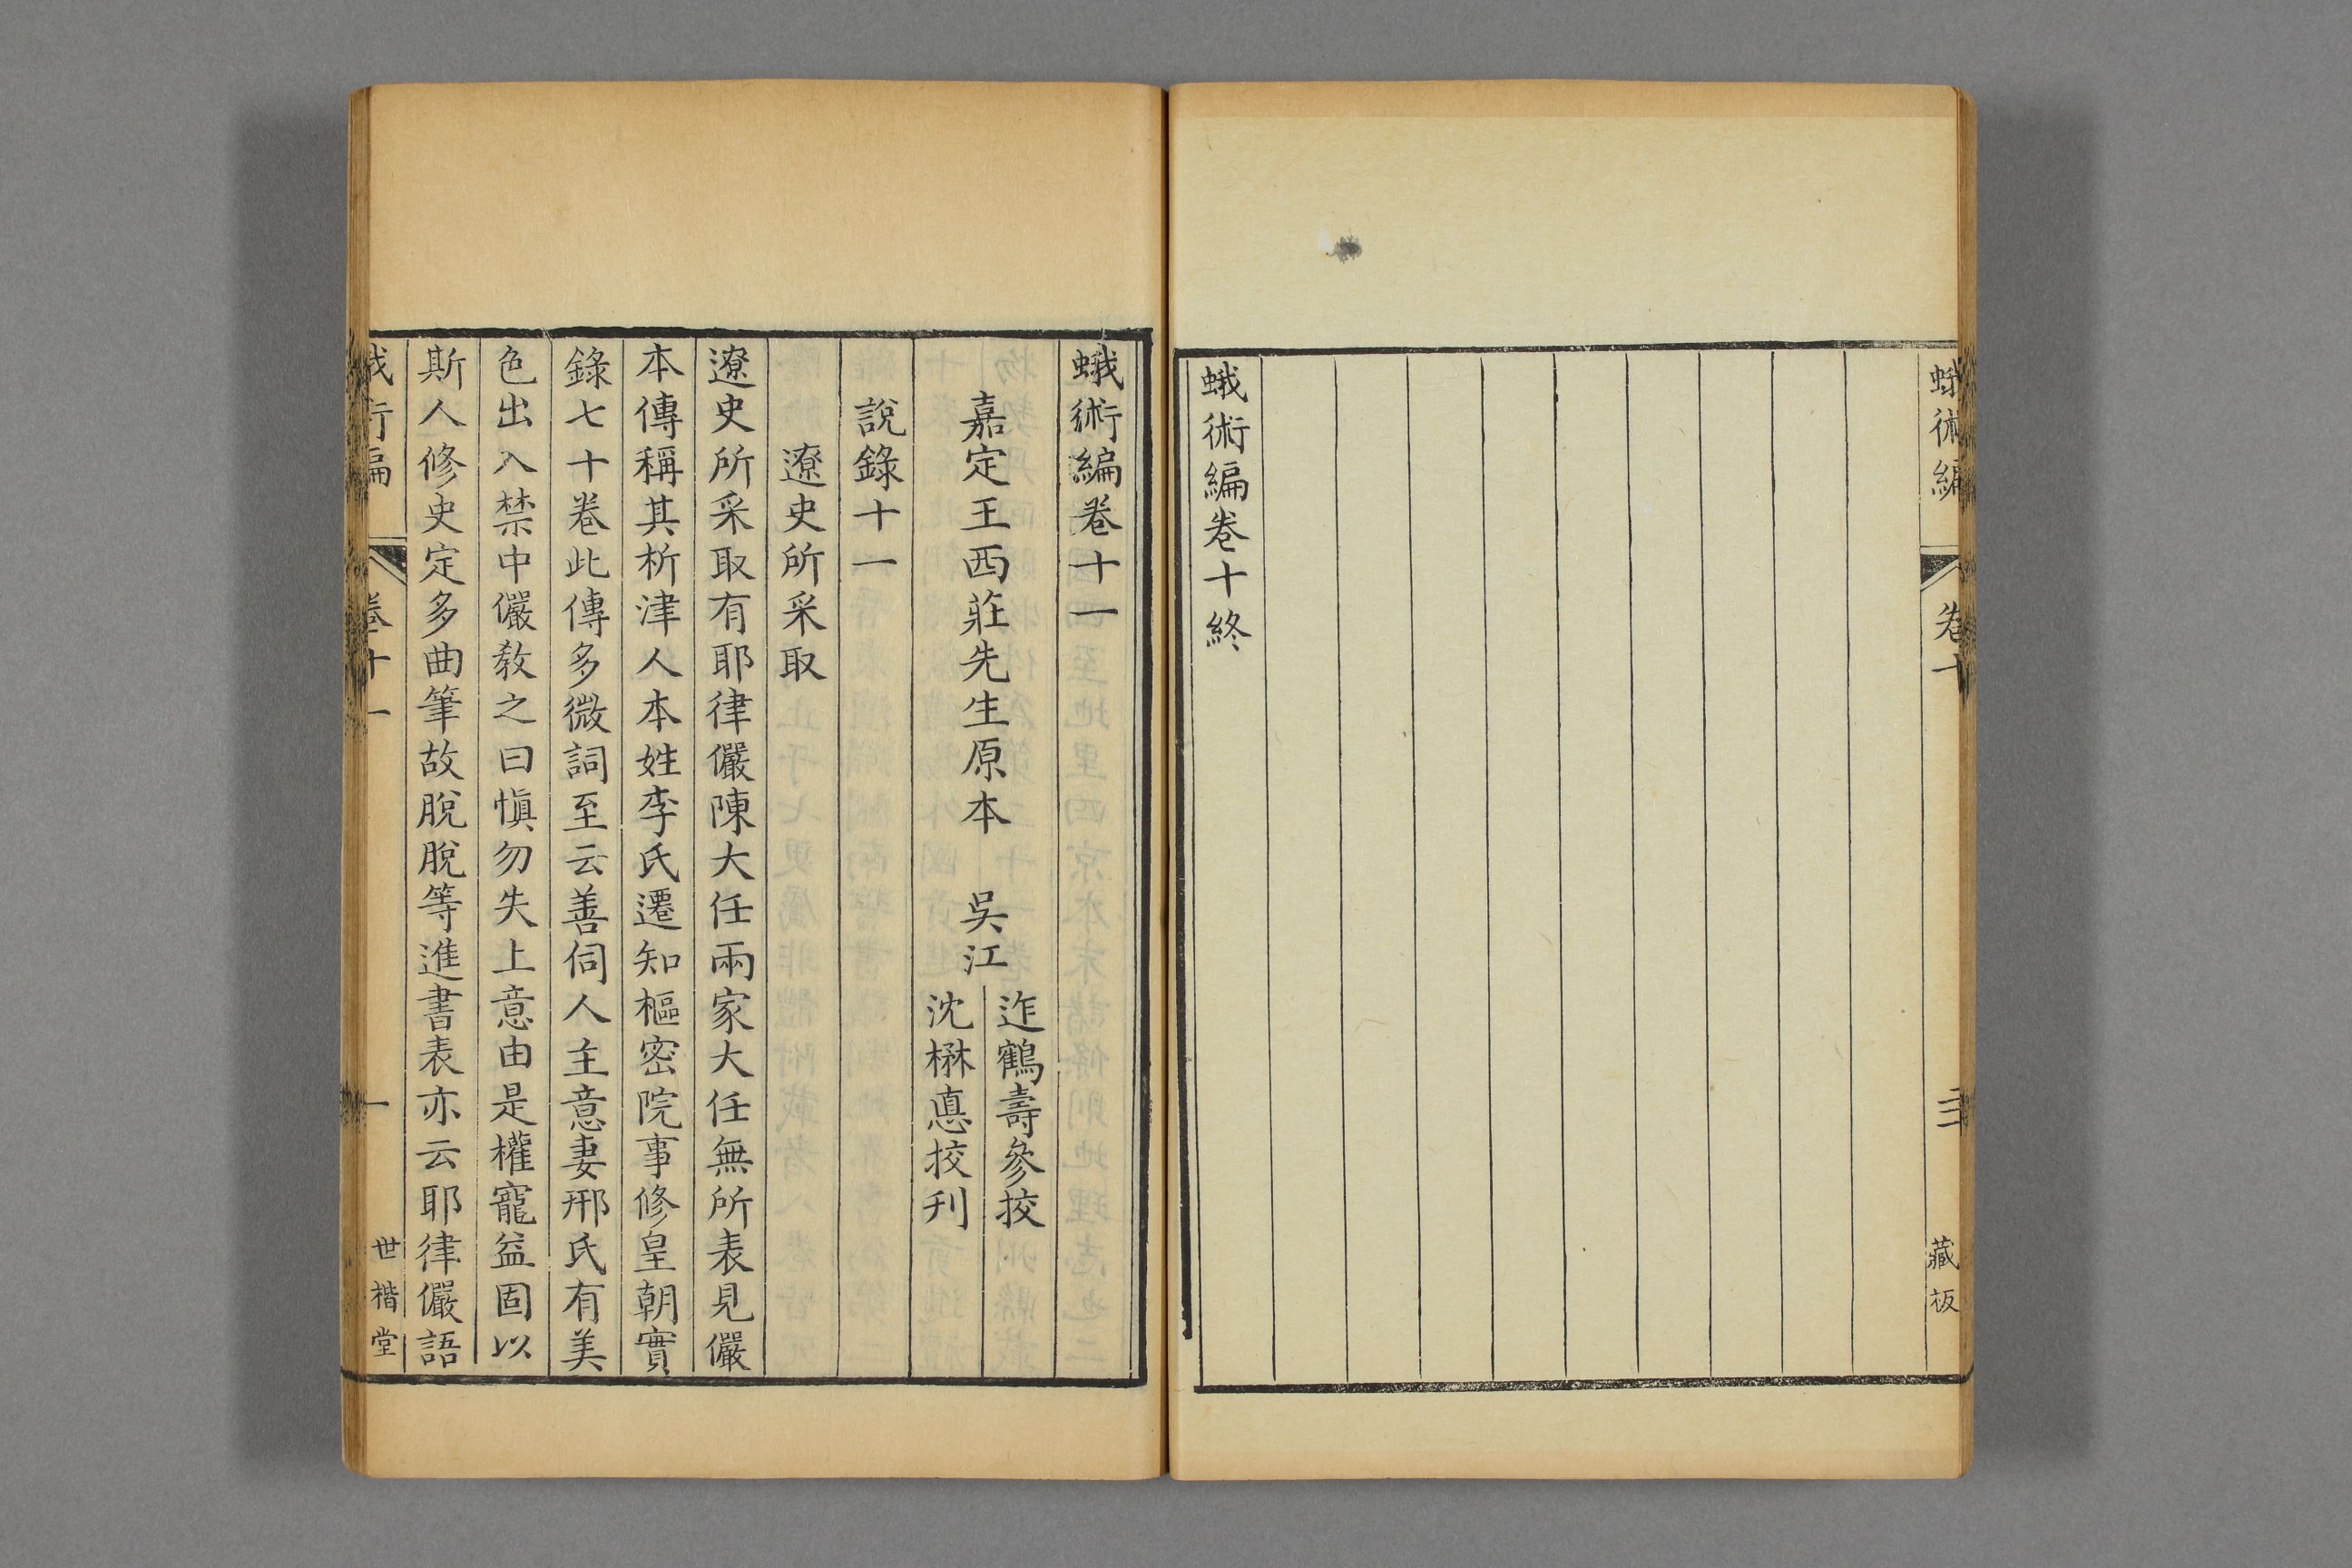 蛾術編
卷十
藏板
蛾術編卷十終
蛾術編卷十一
嘉定王西莊先生原本　吳江
迮鶴壽參挍
沈楙悳挍刊
說錄十一
遼史所采取
遼史所采取有耶律儼陳大任兩家大任無所表見儼
本傳稱其析津人本姓李氏遷知樞密院事修皇朝實
錄七十卷此傳多微詞至云善伺人主意妻邢氏有美
色出入禁中儼敎之曰愼勿失上意由是權寵益固以
斯人修史定多曲筆故脫脫等進書表亦云耶律儼語
術編
卷十一
一
世楷堂